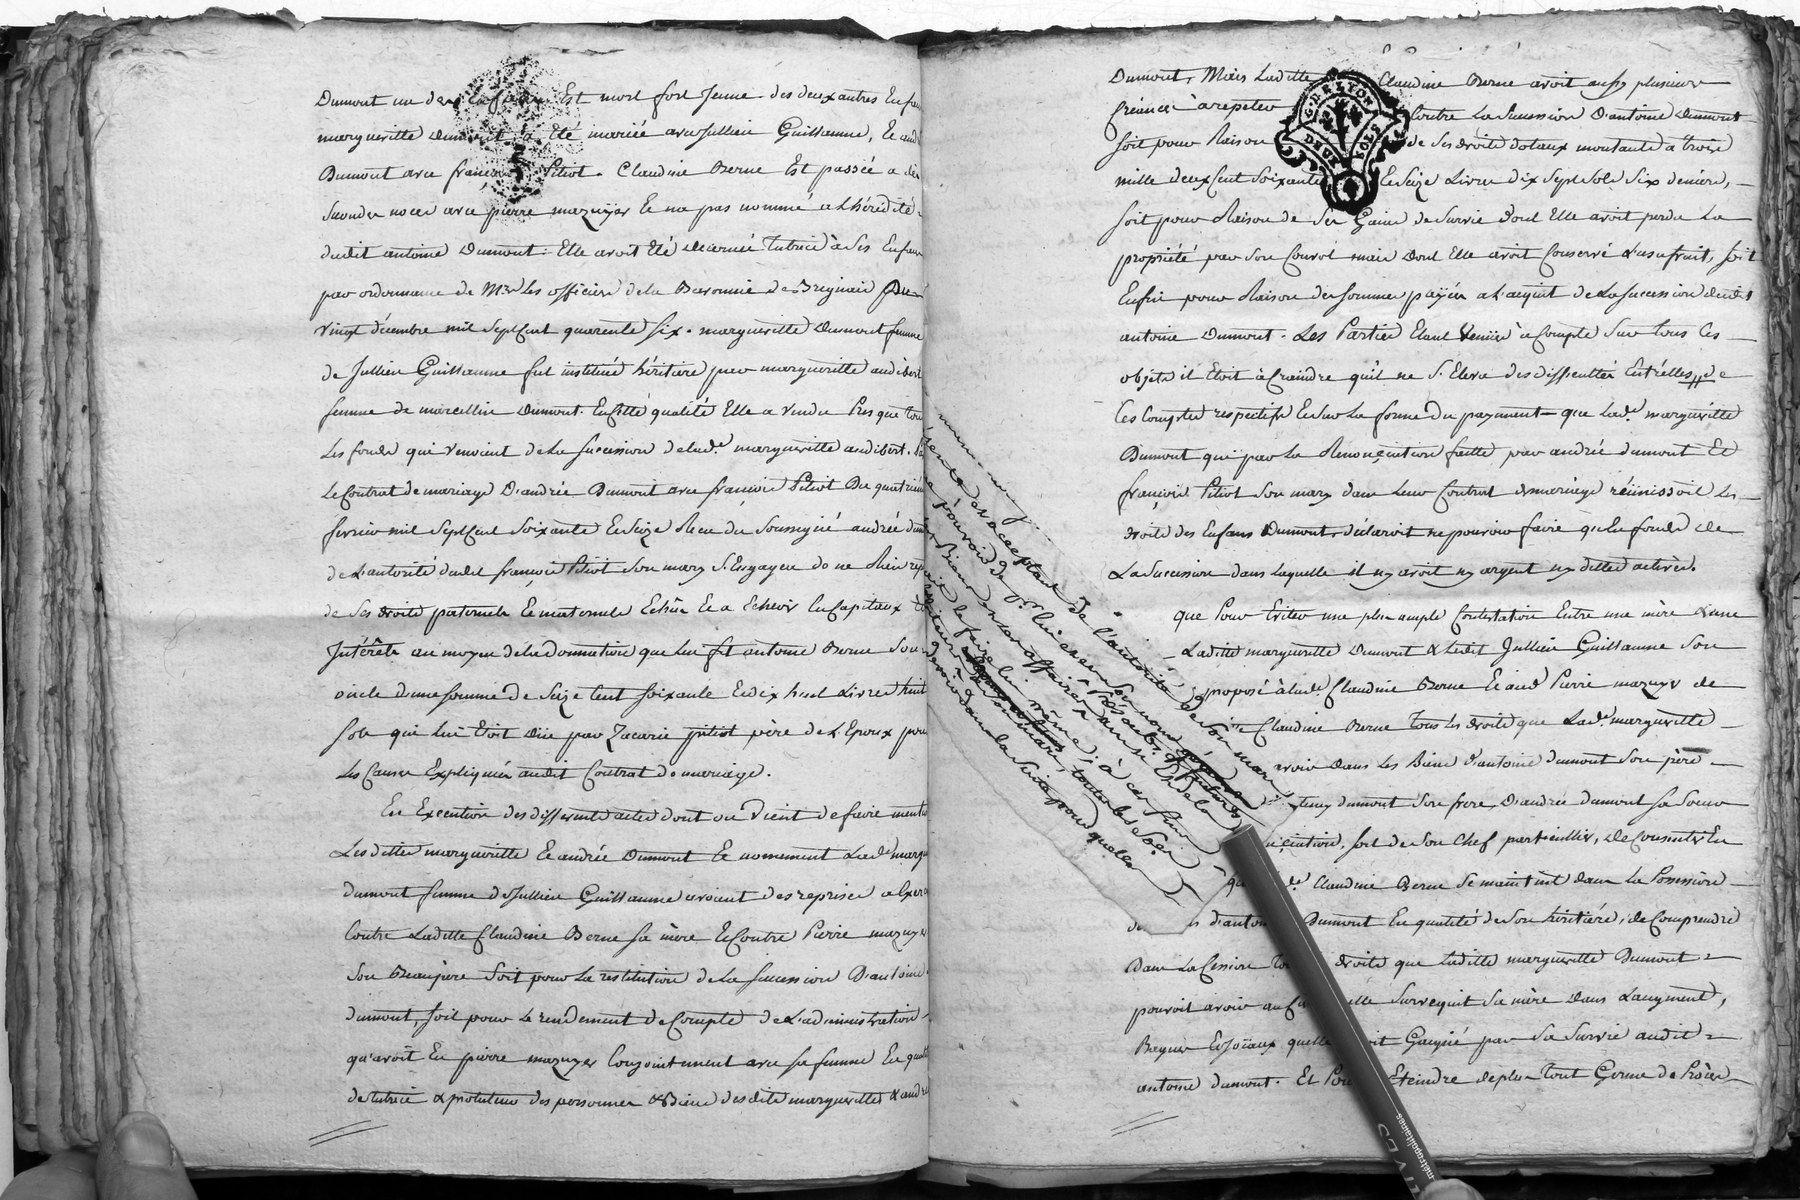 Dumont un des Enfans Est mort fort Jeune. des deux autres Enfan
margueritte Dumont a Eté mariée avec Jullien Guillaume, Et and
Dumont avec françois Pitiot. Claudine Berne Est passée a de
secondes noces avec pierre mazuyer Et na pas nommé a Lhérédité
dudit antoine Dumont. Elle avoit Eté décernée tutrice à Ses Enfans
par ordonnance de Mrs Les officiers de la Baronnie de Brignais Du
vingt décembre mil Sept Cent quarente Six. margueritte Dumont femme
de Jullien Guillaume fut instituée héritiere par margueritte audibert
femme de marcellin Dumont. En cette qualité Elle a vendu Presque tous
Les fonds qui venoient de La succession de lad.e margueritte audibert. Par
Le Contrat de mariage D'andrée Dumont avec françois Pitiot Du quatrième
fevrier mil Sept Cent Soixante Et Seize Recu du Soussigné andrée Dum
de L'autorité dudit françois Pitiot Son mary S'Engagea de ne Rien rep
de Ses droits paternels Et maternels Echûs Et a Echeoir En Capitaux
Intérêts au moyen de la donnation que Lui fit antoine Berne Son
oncle d'une somme de Seize Cent soixante Et dix huit Livres huit
Sols qui Lui Etoit düe par Zacarie pitiot père de L'Epoux pour
Les Causes Expliquées audit Contrat de mariage.
En Execution des differents actes dont on Vient de faire mentio
Lesdittes margueritte Et andrée Dumont Et nomément Lad.e marg
dumont femme de Jullien Guillaume avoient des reprises a Exer
Contre Laditte Claudine Berne sa mère Et Contre Pierre mazuyer
Son Beaupère Soit pour La restitution de La Succession D'antoine
dumont, soit pour Le rendement de Compte de L'administration
qu'avoit Eu pierre mazuyer Conjointement avec sa femme En qualit
de tutrice & protuteur des personnes & Biens desdits margueritte & andré
Dumont, Mais Laditte Claudine Berne avoit aussy plusieurs
Créances à repeter Contre La Succession D'antoine Dumont
G. DE LYON
DEUX SOLS
Soit pour Raison de Ses droits dotaux montants a trois
mille deux Cent Soixante Et Seize Livres dix Sept Sols Six deniers,
soit pour Raison de Ses Gains de Survie dont Elle avoit perdu La
propriété par Son Convol mais dont Elle avoit Conservé L'usufruit, Soit
Enfin pour Raison des sommes payées a L'acquit de La Succession dudit
antoine Dumont. Les Parties Etant Venües à Compte Sur tous Ces
objets il Etoit à Craindre qu'il ne S'Eleva des difficultés Entr'elles, de
Ces Comptes respectifs Et Sur La forme Du payment que Lad.e margueritte
Dumont qui par La Renonciation faitte par andrée dumont Et
françois Pitiot Son mary dans Leur Contrat de mariage réünissoit Les
droits des Enfans Dumont, déclaroit ne pouvoir faire qu'En fonds de
La Succession dans Laquelle il n'y avoit ny argent ny dettes actives.
que Pour Eviter une plus ample Contestation Entre une mère & une
Laditte margueritte Dumont & Ledit Jullien Guillaume Son
proposé à lad.e Claudine Berne Et aud. Pierre mazuyer de
Claudine Berne tous Les droits que Lad.e margueritte
avoir dans Les Biens d'antoine dumont Son père
dumont Son frere, D'andrée dumont sa Soeur
soit de Son Chef particullier, de Consentir En
Claudine Berne Se maintint dans La Possession
d'antoine Dumont En qualité de Son héritiere, de Comprendre
Dans La Cession droits que Laditte margueritte Dumont
pouvoit avoir Survequit Sa mère dans L'augment,
Bagues Et Joïaux quelle Gaigné par Sa Survie audit
antoine dumont. Et Pour Eteindre de plus Tout Germe de Procès
acceptante de l'autorité de Son mary
Biens et Les affaires
le faire lui même ; à cet effet
toutes les fois
dans la Suite pour quelles
métropolitaines